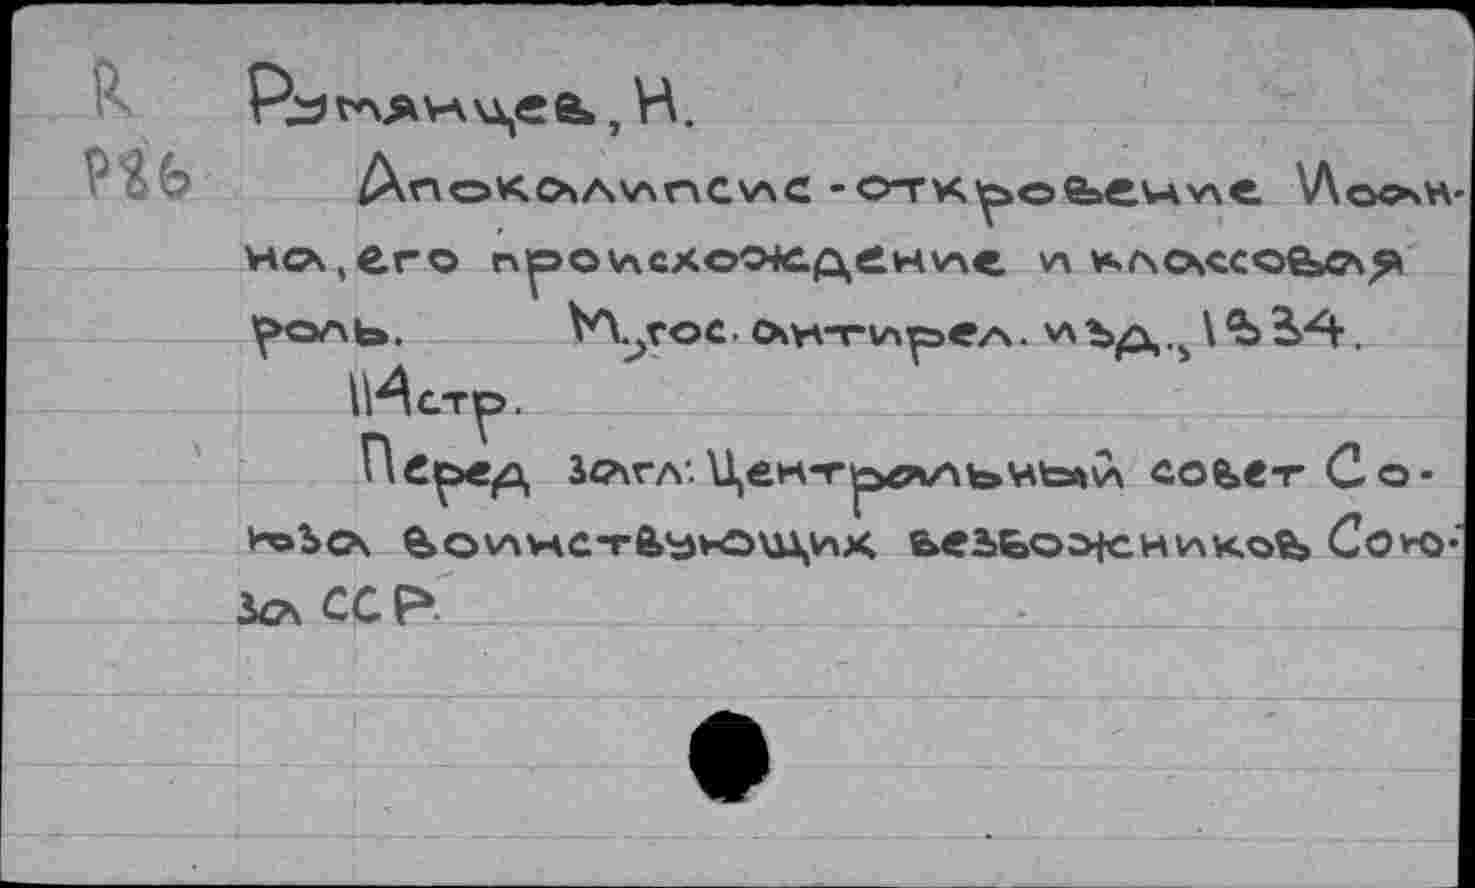 R Румянцев, Н.
P86 Апокалипсис - откровение Иоан-
на, его происхождение и классовая
роль. М., гос. антирел. изд., 1934.
114 стр.
Перед загл: Центральный совет Со-
юза воинствующих безбожников Сою-
за ССР.